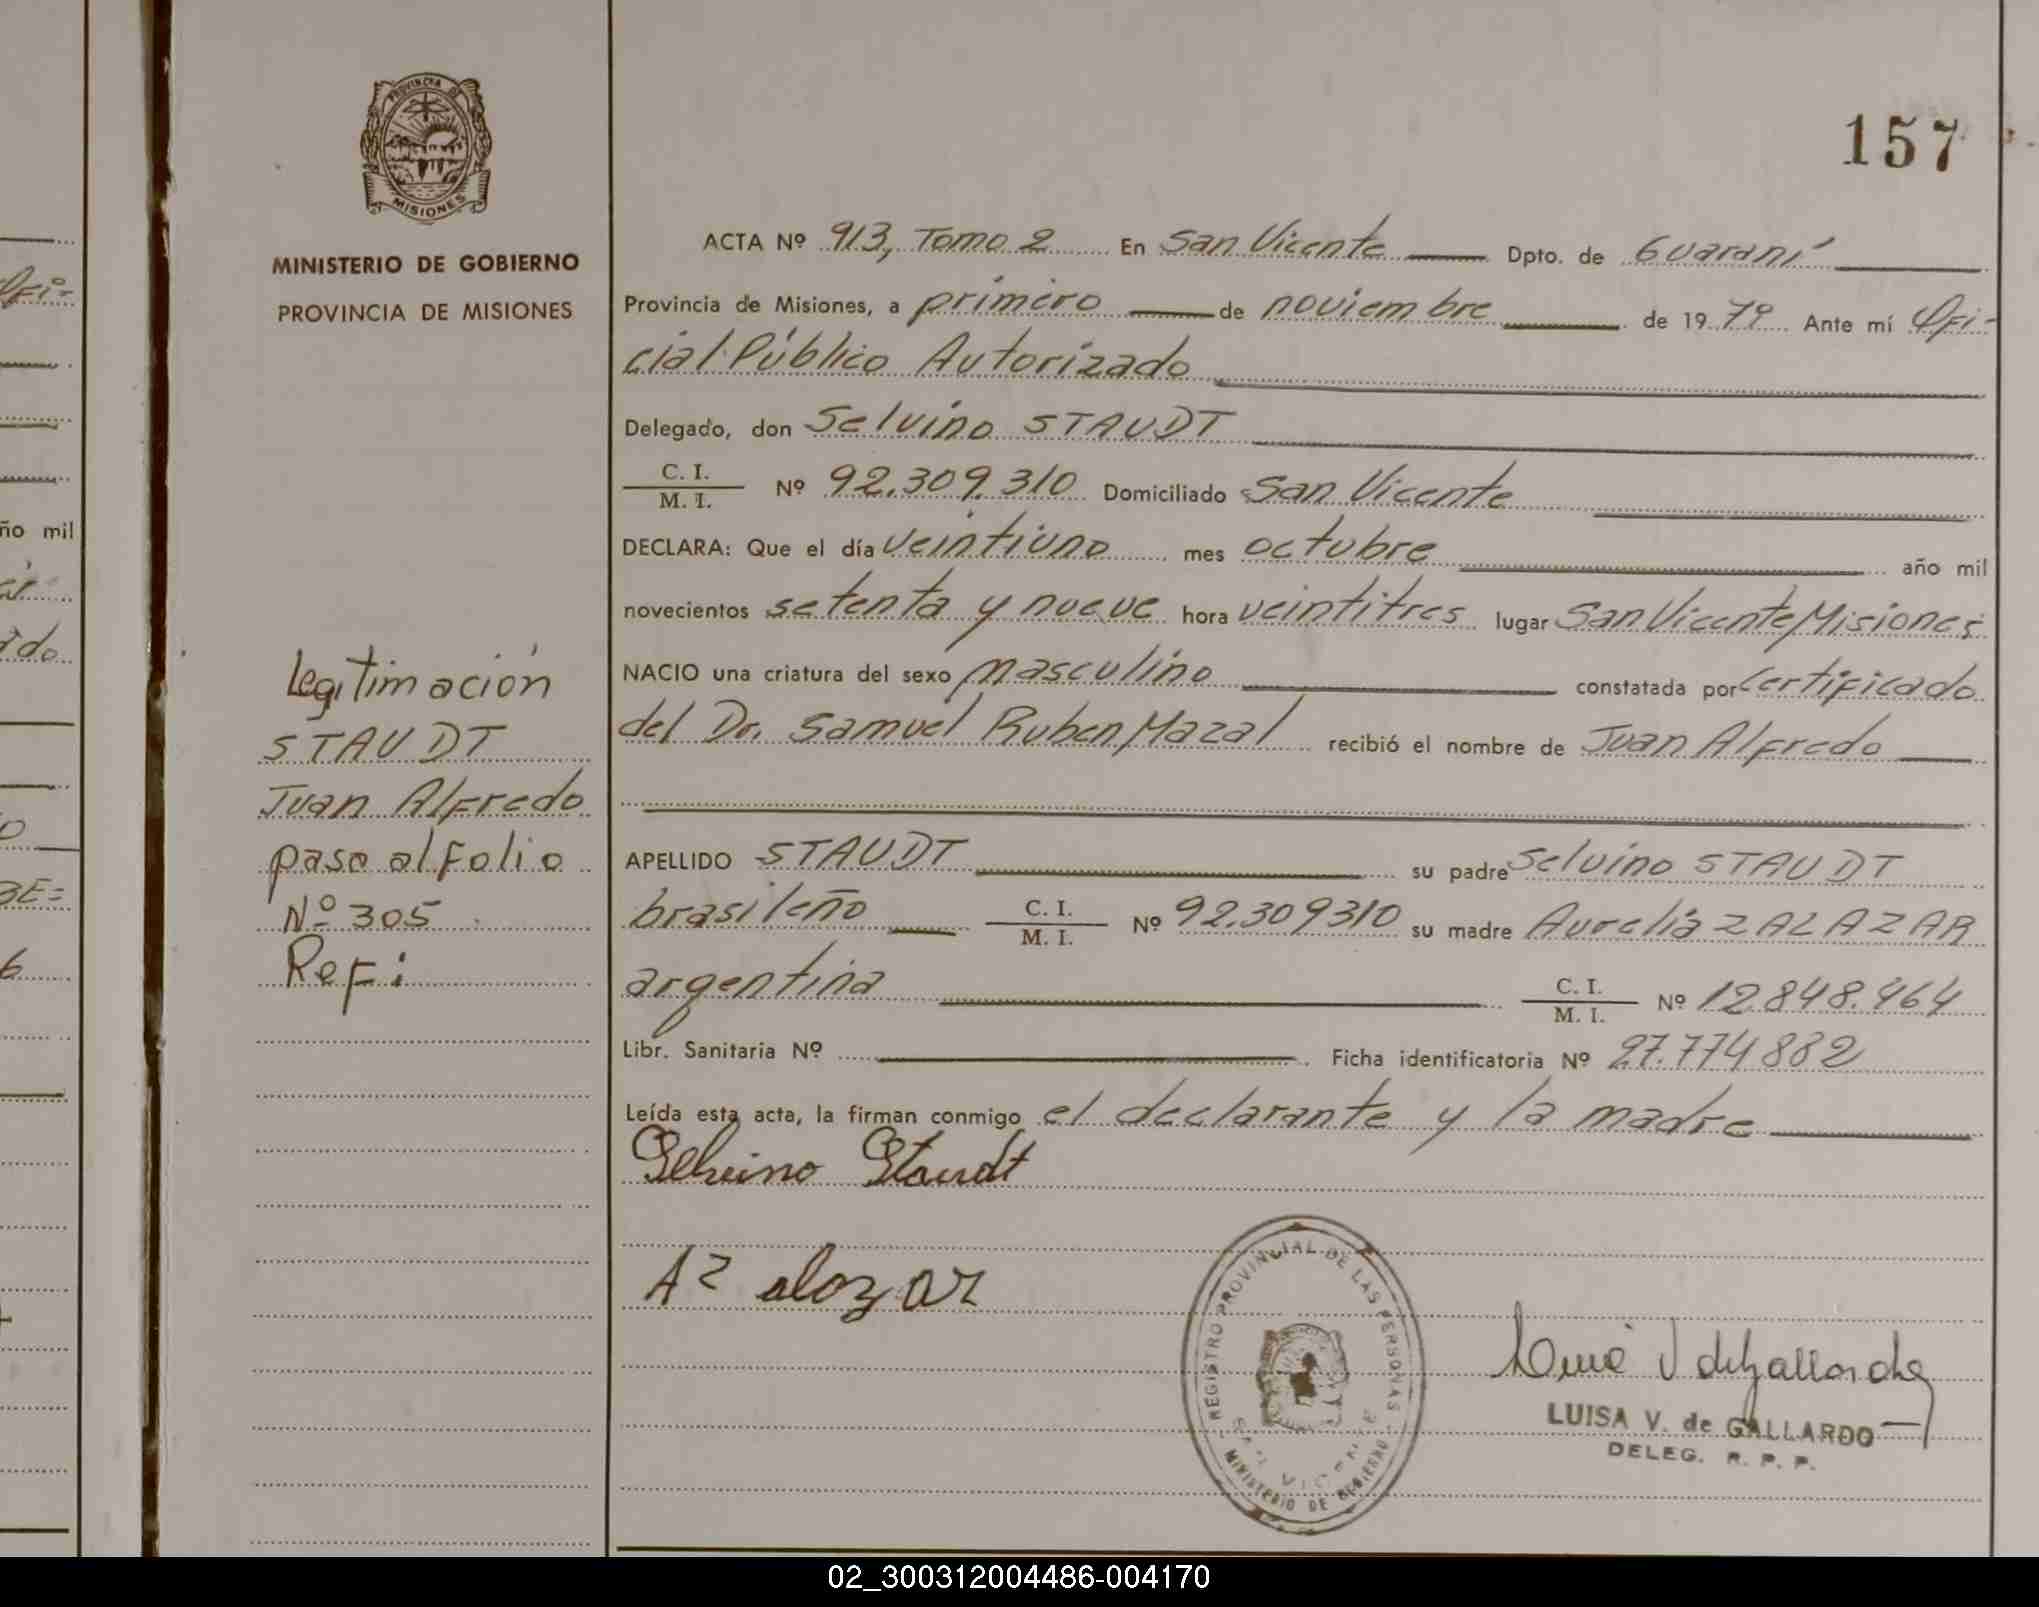 157
PROVINCIA DE
MISIONES
MINISTERIO DE GOBIERNO
PROVINCIA DE MISIONES
ACTA Nº 913, Tomo 2 En San Vicente Dpto. de Guaraní
Provincia de Misiones, a primero de noviembre de 19 79 Ante mí Ofi-
cial Público Autorizado
Delegado, don Selvino STAUDT
C. I. / M. I. Nº 92.309.310 Domiciliado San Vicente
DECLARA: Que el día veintiuno mes octubre año mil
novecientos setenta y nueve hora veintitres lugar San Vicente Misiones
NACIO una criatura del sexo masculino constatada por certificado
del Dr. Samuel Ruben Mazal recibió el nombre de Juan Alfredo
APELLIDO STAUDT su padre Selvino STAUDT
brasileño C. I. / M. I. Nº 92.309310 su madre Aurelia ZALAZAR
argentina C. I. / M. I. Nº 12.848.464
Libr. Sanitaria Nº Ficha identificatoria Nº 27.774.882
Leída esta acta, la firman conmigo el declarante y la madre
Selvino Staudt
A Zalazar
Legitimación
STAUDT
Juan Alfredo
paso al Folio
Nº 305
Ref:
REGISTRO PROVINCIAL DE LAS PERSONAS
SAN VICENTE
MINISTERIO DE GOBIERNO
LUISA V. de GALLARDO
DELEG. R. P. P.
ño mil
02_300312004486-004170